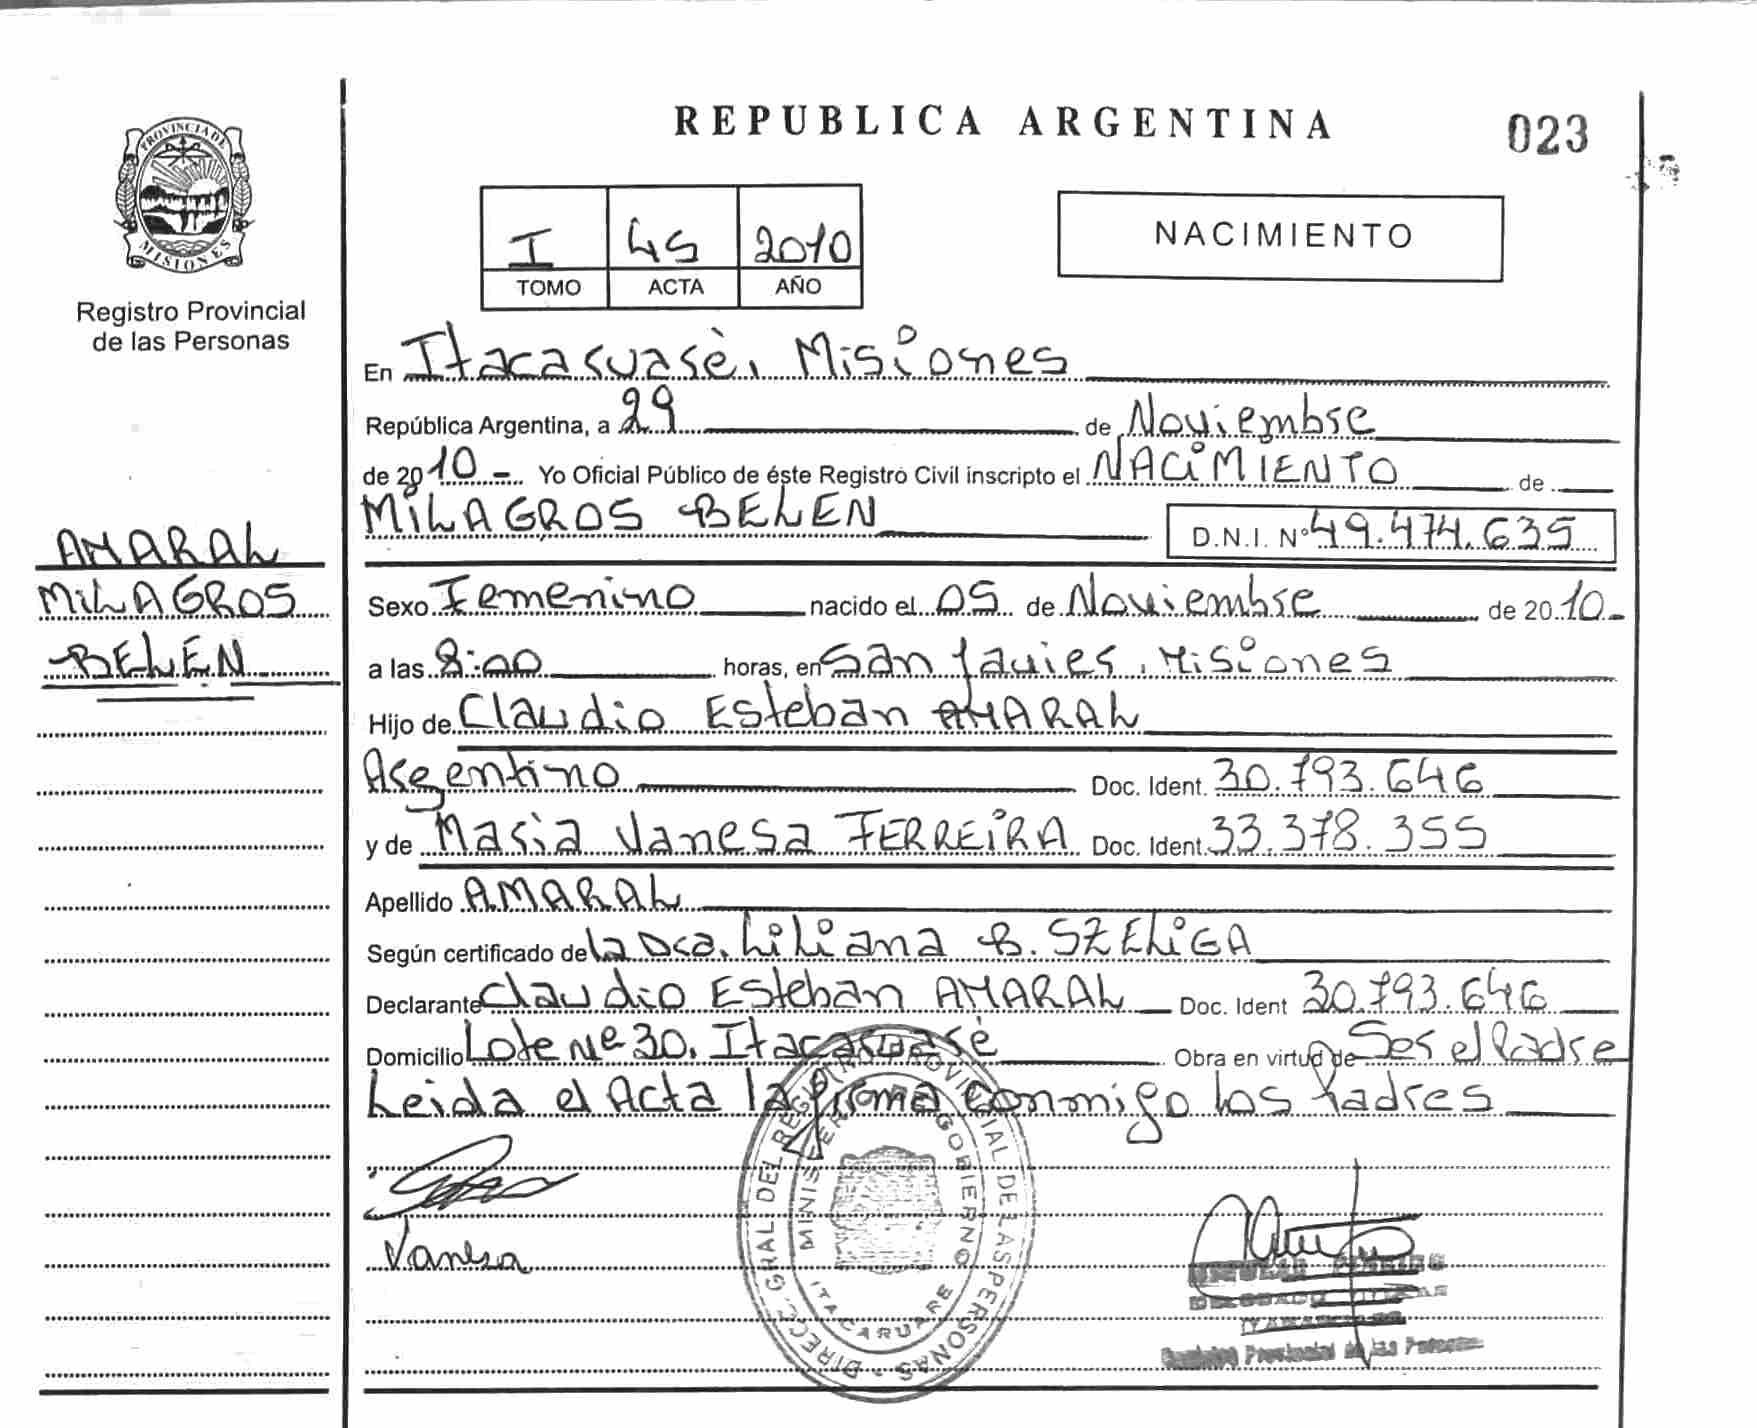 REPUBLICA ARGENTINA
023
PROVINCIA DE
MISIONES
Registro Provincial
de las Personas
I 45 2010
TOMO ACTA AÑO
NACIMIENTO
En Itacaruarè, Misiones
República Argentina, a 29 de Noviembre
de 2010.- Yo Oficial Público de éste Registro Civil inscripto el NACIMIENTO de
MILAGROS BELEN D.N.I. Nº 49.474.635
AMARAL
MILAGROS
BELEN
Sexo Femenino nacido el 05 de Noviembre de 2010-
a las 8:00 horas, en San Javier, Misiones
Hijo de Claudio Esteban AMARAL
Argentino Doc. Ident. 30.793.646
y de Maria Vanesa FERREIRA Doc. Ident. 33.378.355
Apellido AMARAL
Según certificado de la Dra. Liliana B. SZELIGA
Declarante Claudio Esteban AMARAL Doc. Ident 30.793.646
Domicilio Lote Nº 30, Itacaruarè Obra en virtud de Ser el Padre
Leida el Acta la firma conmigo los Padres
Vanesa
DIRECC. GRAL DEL REGISTRO PROVINCIAL DE LAS PERSONAS
MINISTERIO GOBIERNO
ITACARUARE
Provincial de las Personas